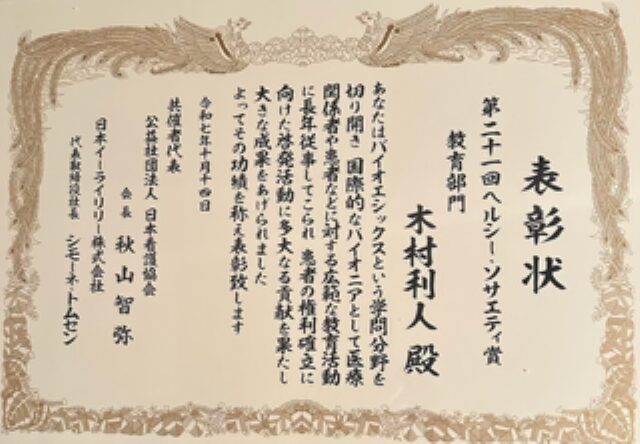 表彰状
第二十一回ヘルシー・ソサエティ賞
教育部門
木村利人 殿
あなたはバイオエシックスという学問分野を
切り開き 国際的なパイオニアとして医療
関係者や患者などに対する広範な教育活動
に長年従事してこられ 患者の権利確立に
向けた啓発活動に多大なる貢献を果たし
大きな成果をあげられました
よってその功績を称え表彰致します
令和七年十月十四日
共催者代表
公益社団法人 日本看護協会
会長 秋山智弥
日本イーライリリー株式会社
代表取締役社長 シモーネ・トムセン